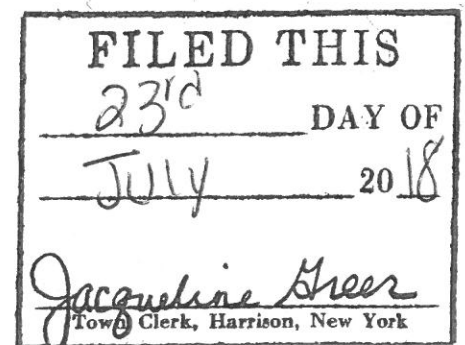 FILED THIS
23rd DAY OF
JULY 2018
Jacqueline Greer
Town Clerk, Harrison, New York